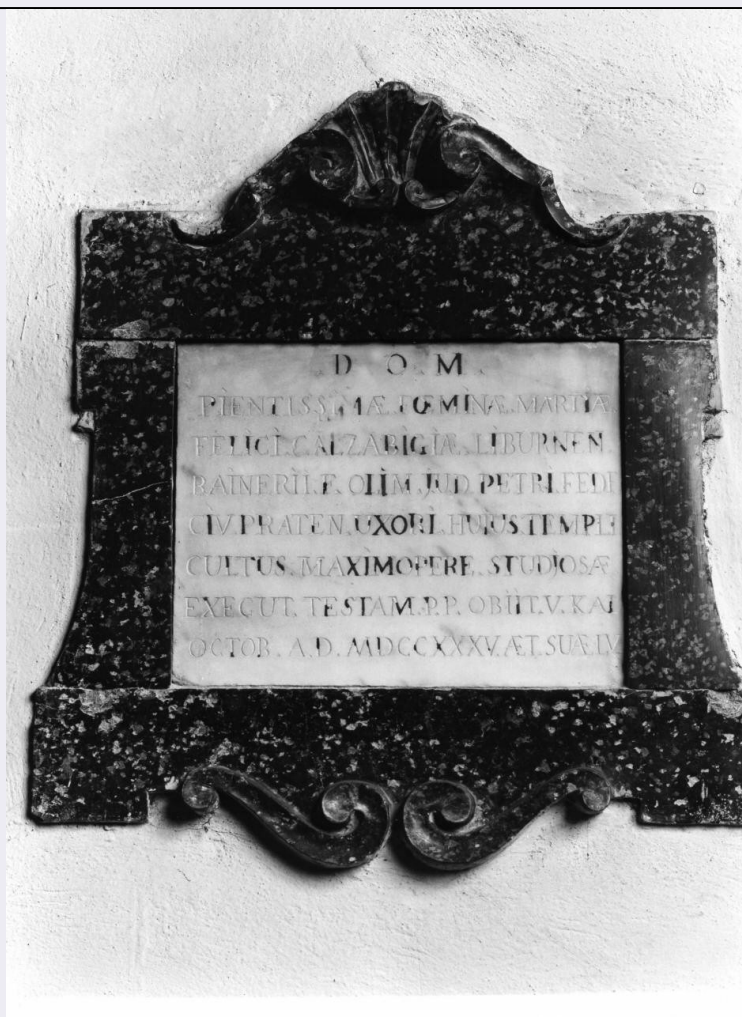 D. O. M.
PIENTISSIMÆ. FŒMINÆ. MARTIÆ
FELICI. CALZABIGIÆ. LIBURNEN.
RAINERII. F. OLIM. JUD. PETRI. FEDI
CIV. PRATEN. UXORI. HUIUS TEMPLI
CULTUS. MAXIMOPERE. STUDIOSÆ
EXECUT. TESTAM. P.P. OBIIT. V. KAL
OCTOB. A.D. MDCCXXXV. ÆT. SUÆ. LV